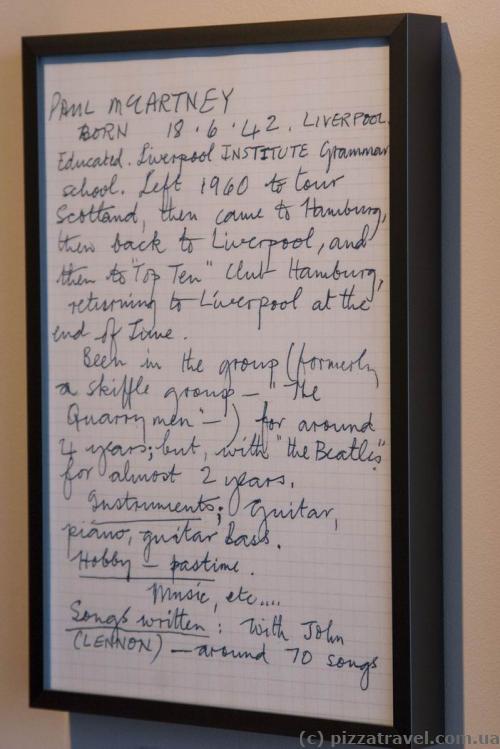 PAUL McCARTNEY
BORN 18.6.42. LIVERPOOL.
Educated. Liverpool INSTITUTE Grammar
school. Left 1960 to tour
Scotland, then came to Hamburg,
then back to Liverpool, and
then to "Top Ten" Club Hamburg,
returning to Liverpool at the
end of June.
Been in the group (formerly
a skiffle group – "The
Quarrymen" –) for around
4 years; but, with "the Beatles"
for almost 2 years.
Instruments; Guitar,
piano, guitar bass.
Hobby – pastime.
Music, etc....
Songs written: with John
(LENNON) – around 70 songs
(c) pizzatravel.com.ua